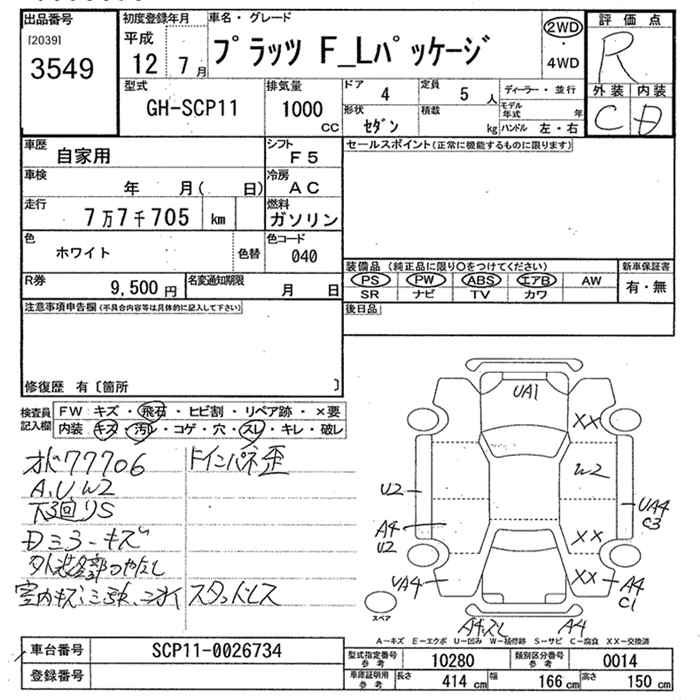 出品番号
[2039]
3549
初度登録年月
平成
12 7月
車名・グレード
プラッツ F_Lパッケージ
2WD
・
4WD
評価点
R
外装 内装
C D
型式
GH-SCP11
排気量
1000
cc
ドア
4
定員
5 人
形状
セダン
積載
kg
ディーラー・並行
モデル年式 年
ハンドル 左・右
車歴
自家用
シフト
F5
車検
年 月( 日)
冷房
AC
走行
7万7千705 km
燃料
ガソリン
色
ホワイト
色替
色コード
040
R券
9,500円
名変通知期限
月 日
セールスポイント(正常に機能するものに限ります)
装備品(純正品に限り○をつけてください)
PS PW ABS エアB AW
SR ナビ TV カワ
新車保証書
有・無
後日品
注意事項申告欄(不具合内容等は具体的に記入して下さい)
修復歴 有〔箇所 〕
検査員記入欄
FW キズ・飛石・ヒビ割・リペア跡・×要
内装 キズ・汚レ・コゲ・穴・スレ・キレ・破レ
77706
A、U、W2
下廻りS
Dミラーキズ
トインパネ歪
UA1
XX
W2
U2
A4
U2
UA4
C3
XX
UA4
XX
A4
C1
A4スレ
A4
スペア
A―キズ E―エクボ U―凹み W―補修跡 S―サビ C―腐食 XX―交換済
車台番号
SCP11-0026734
登録番号
型式指定番号 参考
10280
類別区分番号 参考
0014
車庫証明用 参考
長さ 414 cm
幅 166 cm
高さ 150 cm